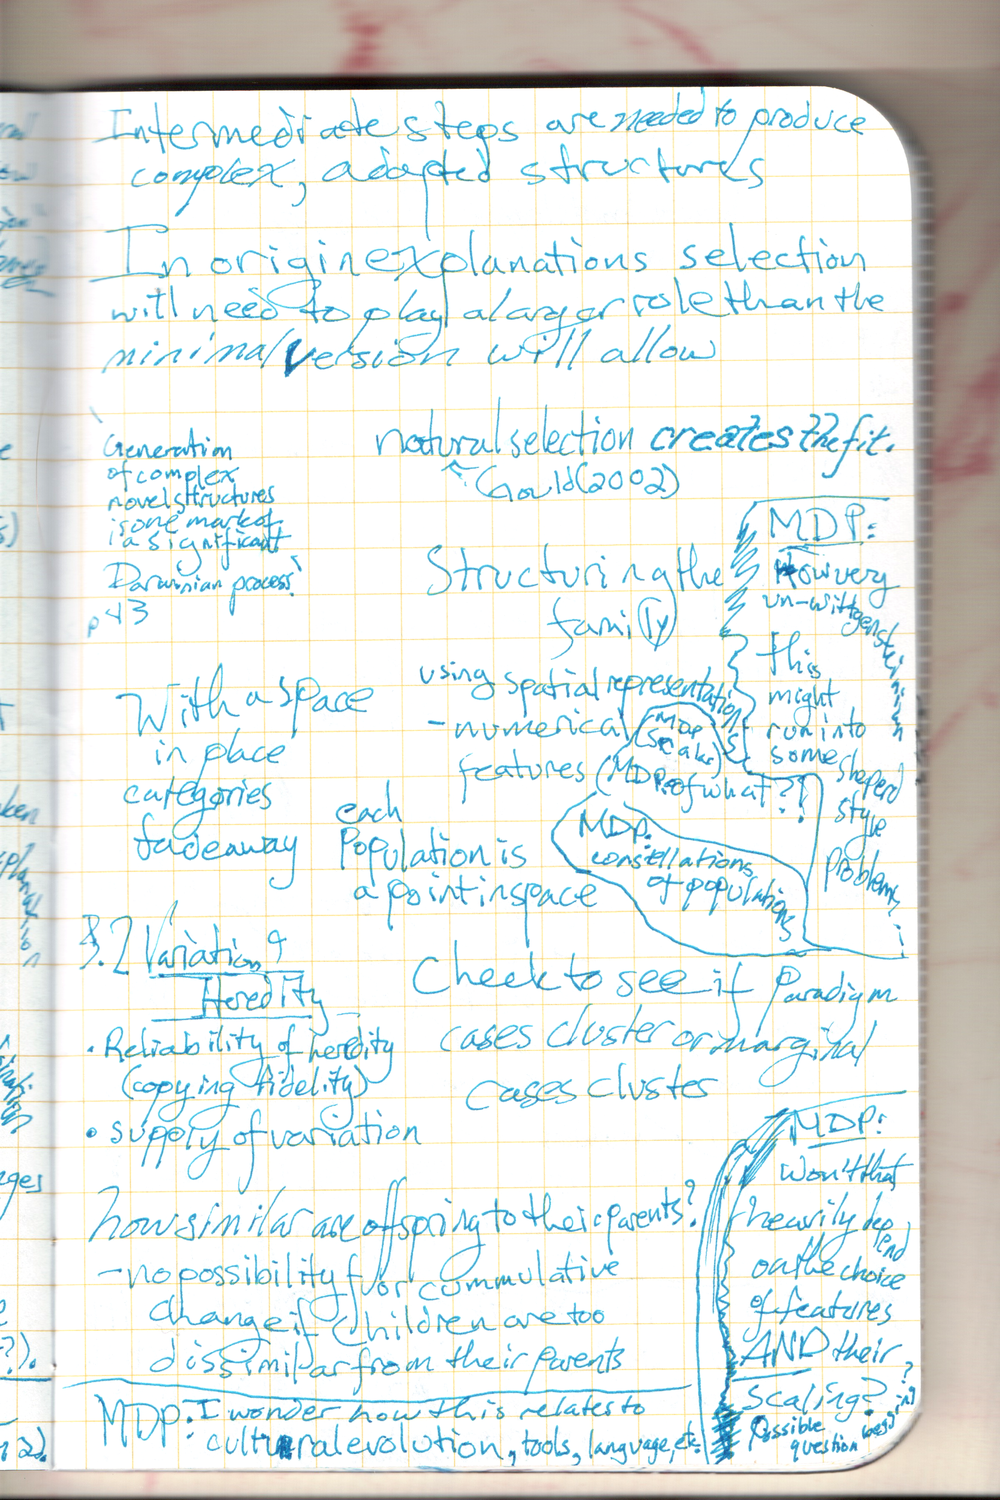 Intermediate steps are needed to produce
complex, adapted structures
In origin explanations selection
will need to play a larger role than the
minimal version will allow
natural selection creates the fit.
Gould (2002)
'Generation
of complex
novel structures
is one mark of
a significant
Darwinian process'
p 43
Structuring the
family
using spatial representations
- numerical
features
MDP:
How very
un-wittgensteinian
this
might
run into
some shaperd
style
problems
(MDP: of what?!
MDP:
constellations
of populations
With a space
in place
categories
fade away
each
Population is
a point in space
3.2 Variation &
Heredity
• Reliability of heredity
(copying fidelity)
• supply of variation
Check to see if Paradigm
cases cluster or marginal
cases cluster
how similar are offspring to their parents?
- no possibility for cummulative
change if children are too
dissimilar from their parents
MDP:
won't that
heavily depend
on the choice
of features
AND their
scaling?
Possible
question
MDP: I wonder how this relates to
cultural evolution, tools, language, etc.